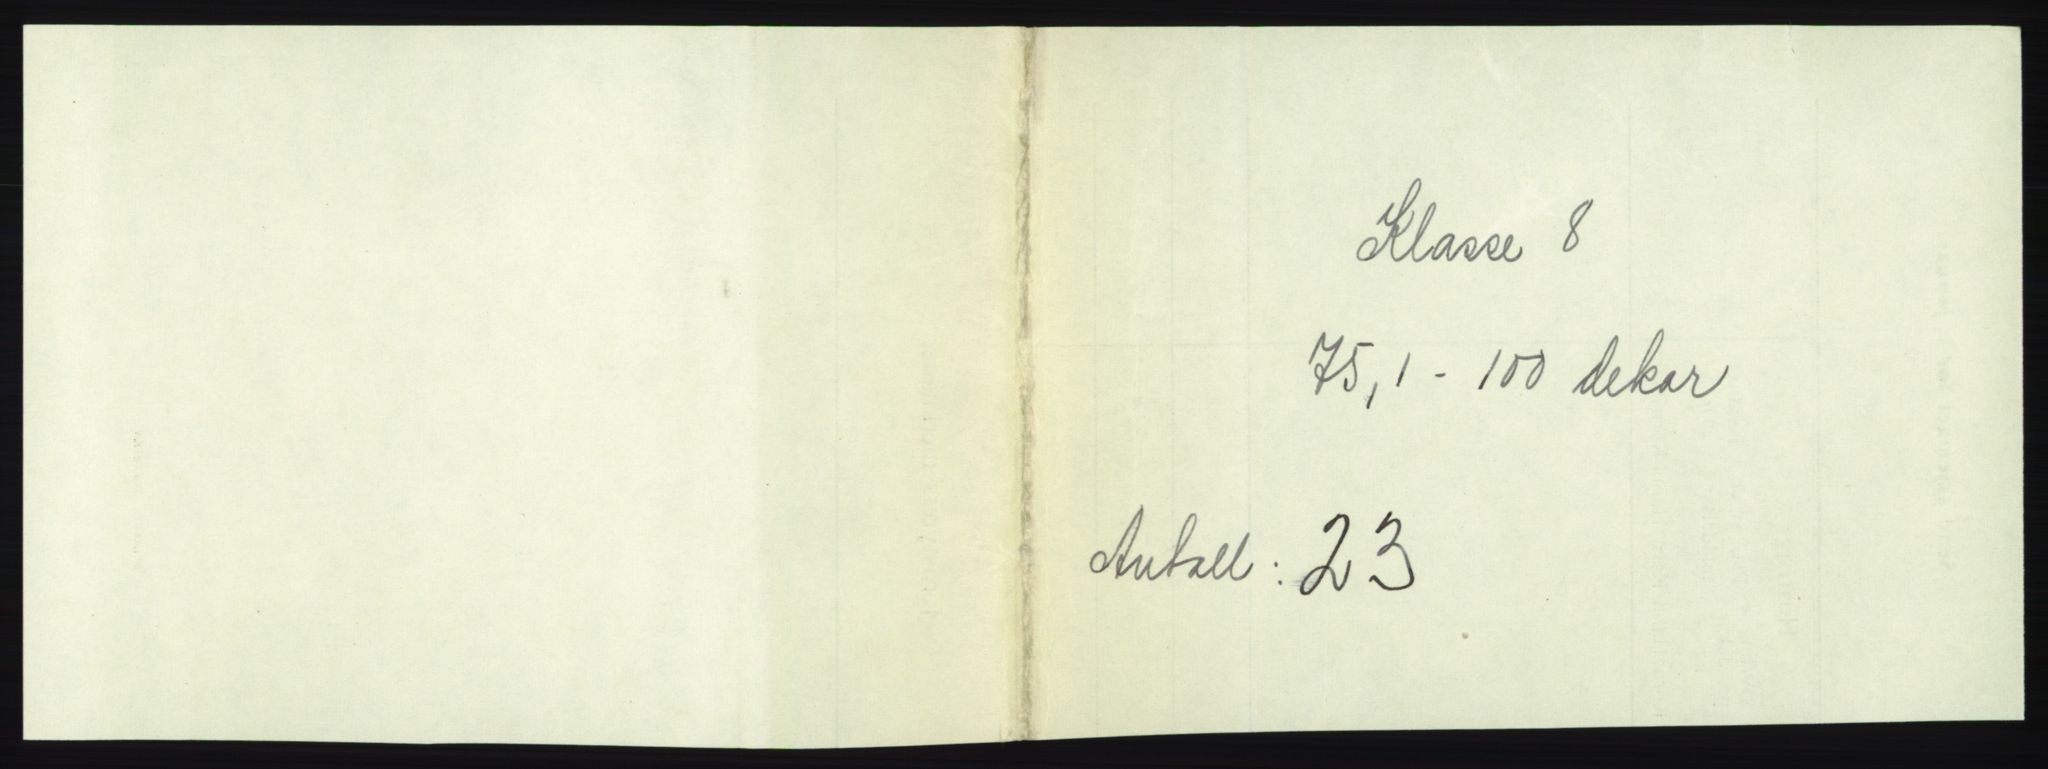 Klasse 8
75,1 - 100 dekar
Antall: 23